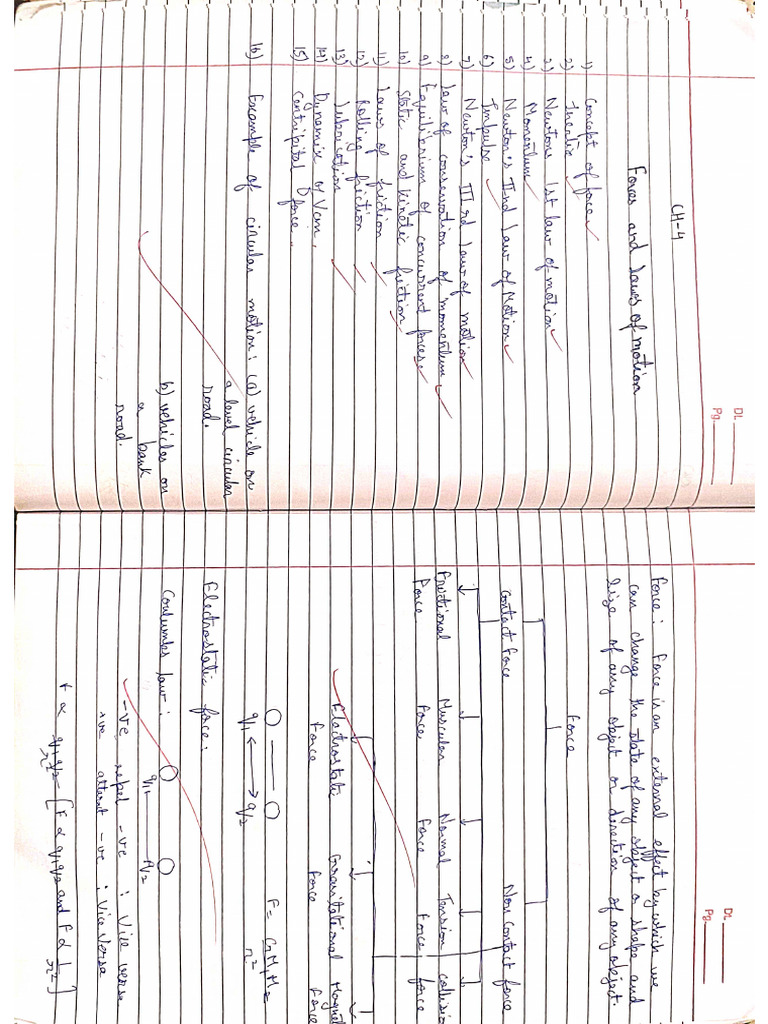 Dt.
Pg.
CH-4
Forces and Laws of Motion
1) Concept of force
2) Inertia
3) Newtons 1st law of motion
4) Momentum
5) Newton's IInd Law of Motion
6) Impulse
7) Newton's IIIrd law of motion
8) Law of conservation of momentum
9) Equilibrium of concurrent forces
10) Static and kinetic friction
11) Laws of friction
12) Rolling friction
13) Lubrication
14) Dynamix of Vcm,
15) Centripital force,
16) Example of circular motion: (a) vehicle on
a level circular
road.
b) vehicles on
a bank
road.
Dt.
Pg.
Force: Force is an external effect by which we
can change the state of any object or shape and
size of any object or direction of any object.
Force
Contact force Non contact force
Frictional Muscular Normal Tension collision
Force Force Force Force force
Electrostatic Gravitational
Force Force Force
F = GM1M2
q1 q2 r2
Electrostatic force:
Coulumbs law:
q1 q2
-ve repel -ve : Vice versa
+ve attract -ve : Vice Versa
F ∝ q1q2/r2 [F ∝ q1q2 and F ∝ 1/r2]